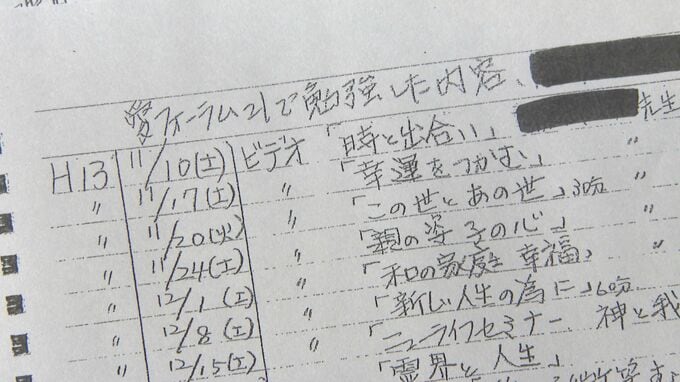 愛フォーラム21で勉強した内容、
H13 11/10(土) ビデオ 「時と出合い」 先生
〃 11/17(土) 〃 「幸運をつかむ」 〃
〃 11/20(火) 〃 「この世とあの世」30分 〃
〃 11/24(土) 〃 「親の姿子の心」 〃
〃 12/1(土) 〃 「和の家庭 幸福」 〃
〃 12/8(土) 〃 「新しい人生の為に」60分
〃 12/15(土) 〃 「ニューライフセミナー 神と我
「霊界と人生」